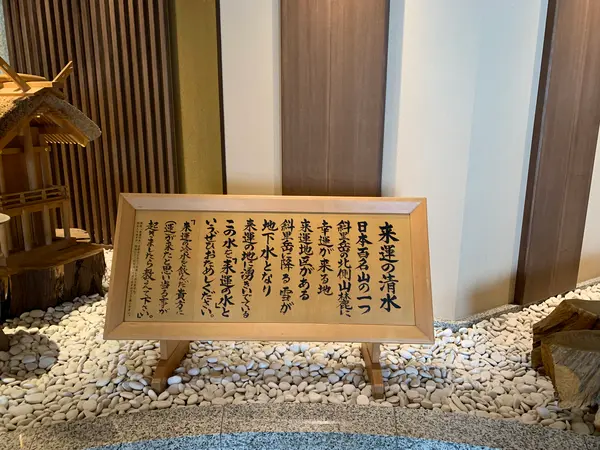 来運の清水
日本百名山の一つ
斜里岳の北側山麓に
幸運が来る地
来運地区がある
斜里岳に降る雪が
地下水となり
来運の地に湧きいでいる
この水を来運の水と
いふ ぜひお召めしください。
「来運の水を飲んだ貴方に
運が来たと思い当る事が
起りましたら教えて下さい。」